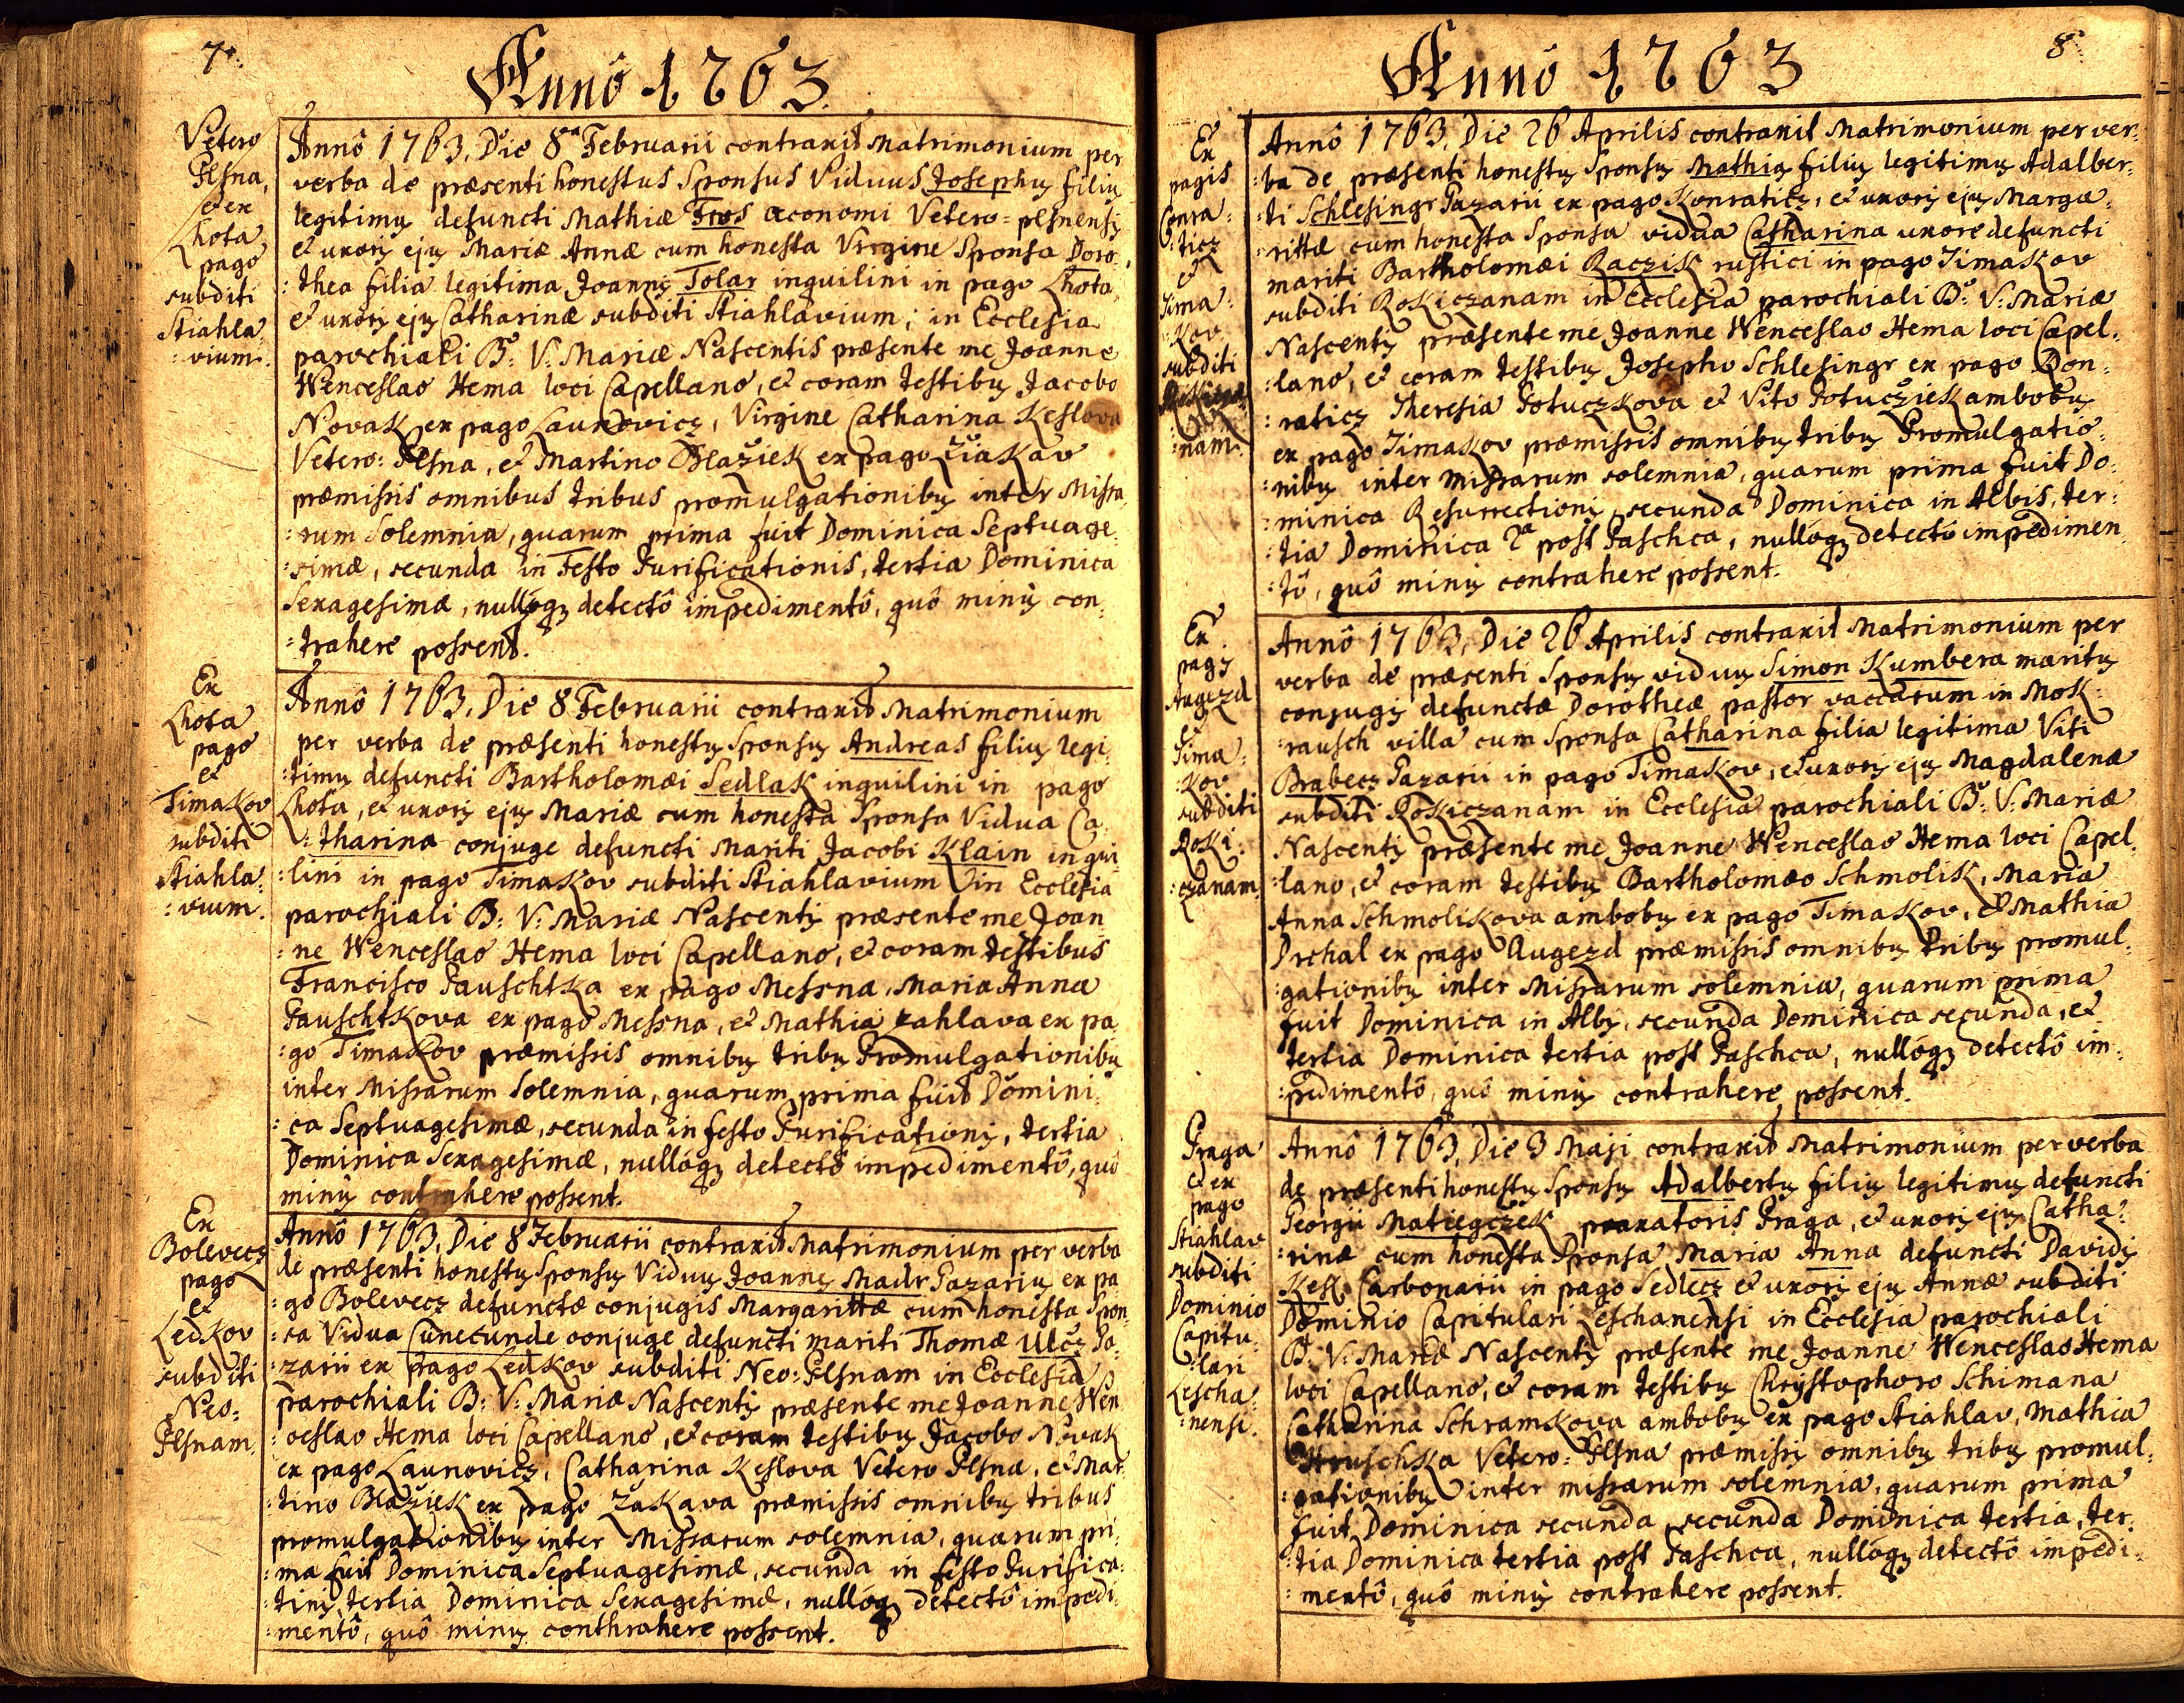 7.
Annô 1763.
Vetero
Plsna,
et ex
Lhota
pago
subditi
Stiahla:
:vium.
Annô 1763. Die 8a Februarii contraxit Matrimonium per
verba de præsenti honestus Sponsus Viduus Josephus filius
legitimus defuncti Mathiæ Tros œconomi Vetero=plsnensis
et uxoris ejus Mariæ Annæ cum honesta Virgine Sponsa Doro:
:thea filia legitima Joannis Tolar inquilini in pago Lhota
et uxoris ejus Catharinæ subditi Stiahlavium; in Ecclesia
parochiali B: V: Mariæ Nascentis præsente me Joanne
Wenceslao Hema loci Capellano, et coram testibus Jacobo
Novak ex pago Launovicz, Virgine Catharina Keslova
Vetero: Plsna, et Martino Blažiek ex pago Žiakav
præmissis omnibus tribus promulgationibus inter Missa:
:rum Solemnia, quarum prima fuit Dominica Septuage:
:simæ, secunda in Festo Purificationis, tertia Dominica
Sexagesimæ, nullóq; detectô impedimentô, quô minus con:
:trahere possent.
Ex
Lhota
pago
et
Timakov
subditi
Stiahla:
:vium.
Annô 1763, Die 8 Februarii contraxit Matrimonium
per verba de præsenti honestus Sponsus Andreas filius legi:
:timus defuncti Bartholomæi Sedlak inquilini in pago
Lhota, et uxoris ejus Mariæ cum honesta Sponsa Vidua Ca:
:tharina conjuge defuncti Mariti Jacobi Klain inqui:
:lini in pago Timakov subditi Stiahlavium in Ecclesia
parochiali B: V: Mariæ Nascentis præsente me Joan:
:ne Wenceslao Hema loci Capellano, et coram testibus
Francisco Pauschtka ex pago Messna, Maria Anna
Pauschtkova ex pago Messna, et Mathia zahlava ex pa:
:go Timakov præmissis omnibus tribus Promulgationibus
inter Missarum Solemnia, quarum prima fuit Domini:
:ca Septuagesimæ, secunda in festo Purificationis, tertia
Dominica Sexagesimæ, nullóq; detectô impedimentô, quô
minus contrahere possent.
Ex
Bolevecz
pago
et
Ledkov
subditi
Neo:
Plsnam.
Annô 1763, Die 8 Februarii contraxit Matrimonium per verba
de præsenti honestus Sponsus Viduus Joannes Madr Pazarius ex pa:
:go Bolevecz defunctæ conjugis Margarittæ cum honesta Spon:
:sa Vidua Cunecunde conjuge defuncti mariti Thomæ Ulcz Pa:
:zarii ex pago Ledkov subditi Neo: Plsnam in Ecclesia
parochiali B: V: Mariæ Nascentis præsente me Joanne Wen:
:ceslao Hema loci Capellano, et coram testibus Jacobo Novak
ex pago Launovicz, Catharina Keslova Vetero Plsna, et Mar:
:tino Blažiek ex pago Zakava præmissis omnibus tribus
promulgationibus inter Missarum solemnia, quarum pri:
:ma fuit Dominica Septuagesimæ, secunda in festo Purifica:
:tinis, tertia Dominica Sexagesimæ, nullóq; detectô impedi:
:mentô, quô minus conthrahere possent.
8
Annô 1763
Ex
pagis
Conra:
:ticz
et
Tima:
:kov
subditi
:nam.
Annô 1763. Die 26 Aprilis contraxit Matrimonium per ver:
:ba de præsenti honestus Sponsus Mathias filius legitimus Adalber:
:ti Schlesingr Pazarii ex pago Konraticz, et uxoris ejus Marga:
:rittæ cum honesta Sponsa vidua Catharina uxore defuncti
mariti Bartholomæi Raczik rustici in pago Timakov
subditi Rokiczanam in Ecclesia parochiali B: V: Mariæ
Nascentis præsente me Joanne Wenceslao Hema loci Capel:
:lano, et coram testibus Josepho Schlesingr ex pago Con:
:raticz Theresia Potuczkova et Vito Potucziek ambobus
ex pago Timakov præmissis omnibus tribus Promulgatio:
:nibus inter Missarum solemnia, quarum prima fuit Do:
:minica Resurrectionis, secunda Dominica in Albis, ter:
:tia Dominica 2a post Pascha, nullóq; detectô impedimen:
:tô, quô minus contrahere possent.
Ex
pagis
Augezd
et
Tima:
:kov
subditi
Roki:
:czanam.
Annô 1763, Die 26 Aprilis contraxit Matrimonium per
verba de præsenti Sponsus viduus Simon Kumbera maritus
conjugis defunctæ Dorotheæ pastor vaccarum in Mok:
:rausch villa cum Sponsa Catharina filia legitima Viti
Brabecz Pazarii in pago Timakov, et uxoris ejus Magdalenæ
subditi Rokiczanam in Ecclesia parochiali B: V: Mariæ
Nascentis præsente me Joanne Wenceslao Hema loci Capel:
:lano, et coram testibus Bartholomæo Schmolik, Maria
Anna Schmolikova ambobus ex pago Timakov, et Mathia
Drchal ex pago Augezd præmissis omnibus tribus promul:
:gationibus inter Missarum solemnia, quarum prima
fuit Dominica in Albis, secunda Dominica secunda, et
tertia Dominica tertia post Pascha, nullóq; detectô im:
:pedimentô, quô minus contrahere possent.
Praga
et ex
pago
Stiahlav
subditi
Dominio
Capitu:
:lari
Lescha:
:nensi.
Annô 1763, Die 3 Maji contraxit Matrimonium per verba
de præsenti honestus Sponsus Adalbertus filius legitimus defuncti
Georgii Matiegczek Praga, et uxoris ejus Catha:
:rinæ cum honesta Sponsa Maria Anna defuncti Davidis
Kesl Carbonarii in pago Sedlecz et uxoris ejus Annæ subditi
Dominio Capitulari Leschanensi in Ecclesia parochiali
B: V: Mariæ Nascentis præsente me Joanne Wenceslao Hema
loci Capellano, et coram testibus Christophoro Schimana
Catharina Schramkova ambobus ex pago Stiahlav, Mathia
Hruschka Vetero: Plsna præmissis omnibus tribus promul:
:gationibus inter missarum solemnia, quarum prima
fuit Dominica secunda, secunda Dominica tertia, ter:
:tia Dominica tertia post Pascha, nullóq; detectô impedi:
:mentô, quô minus contrahere possent.